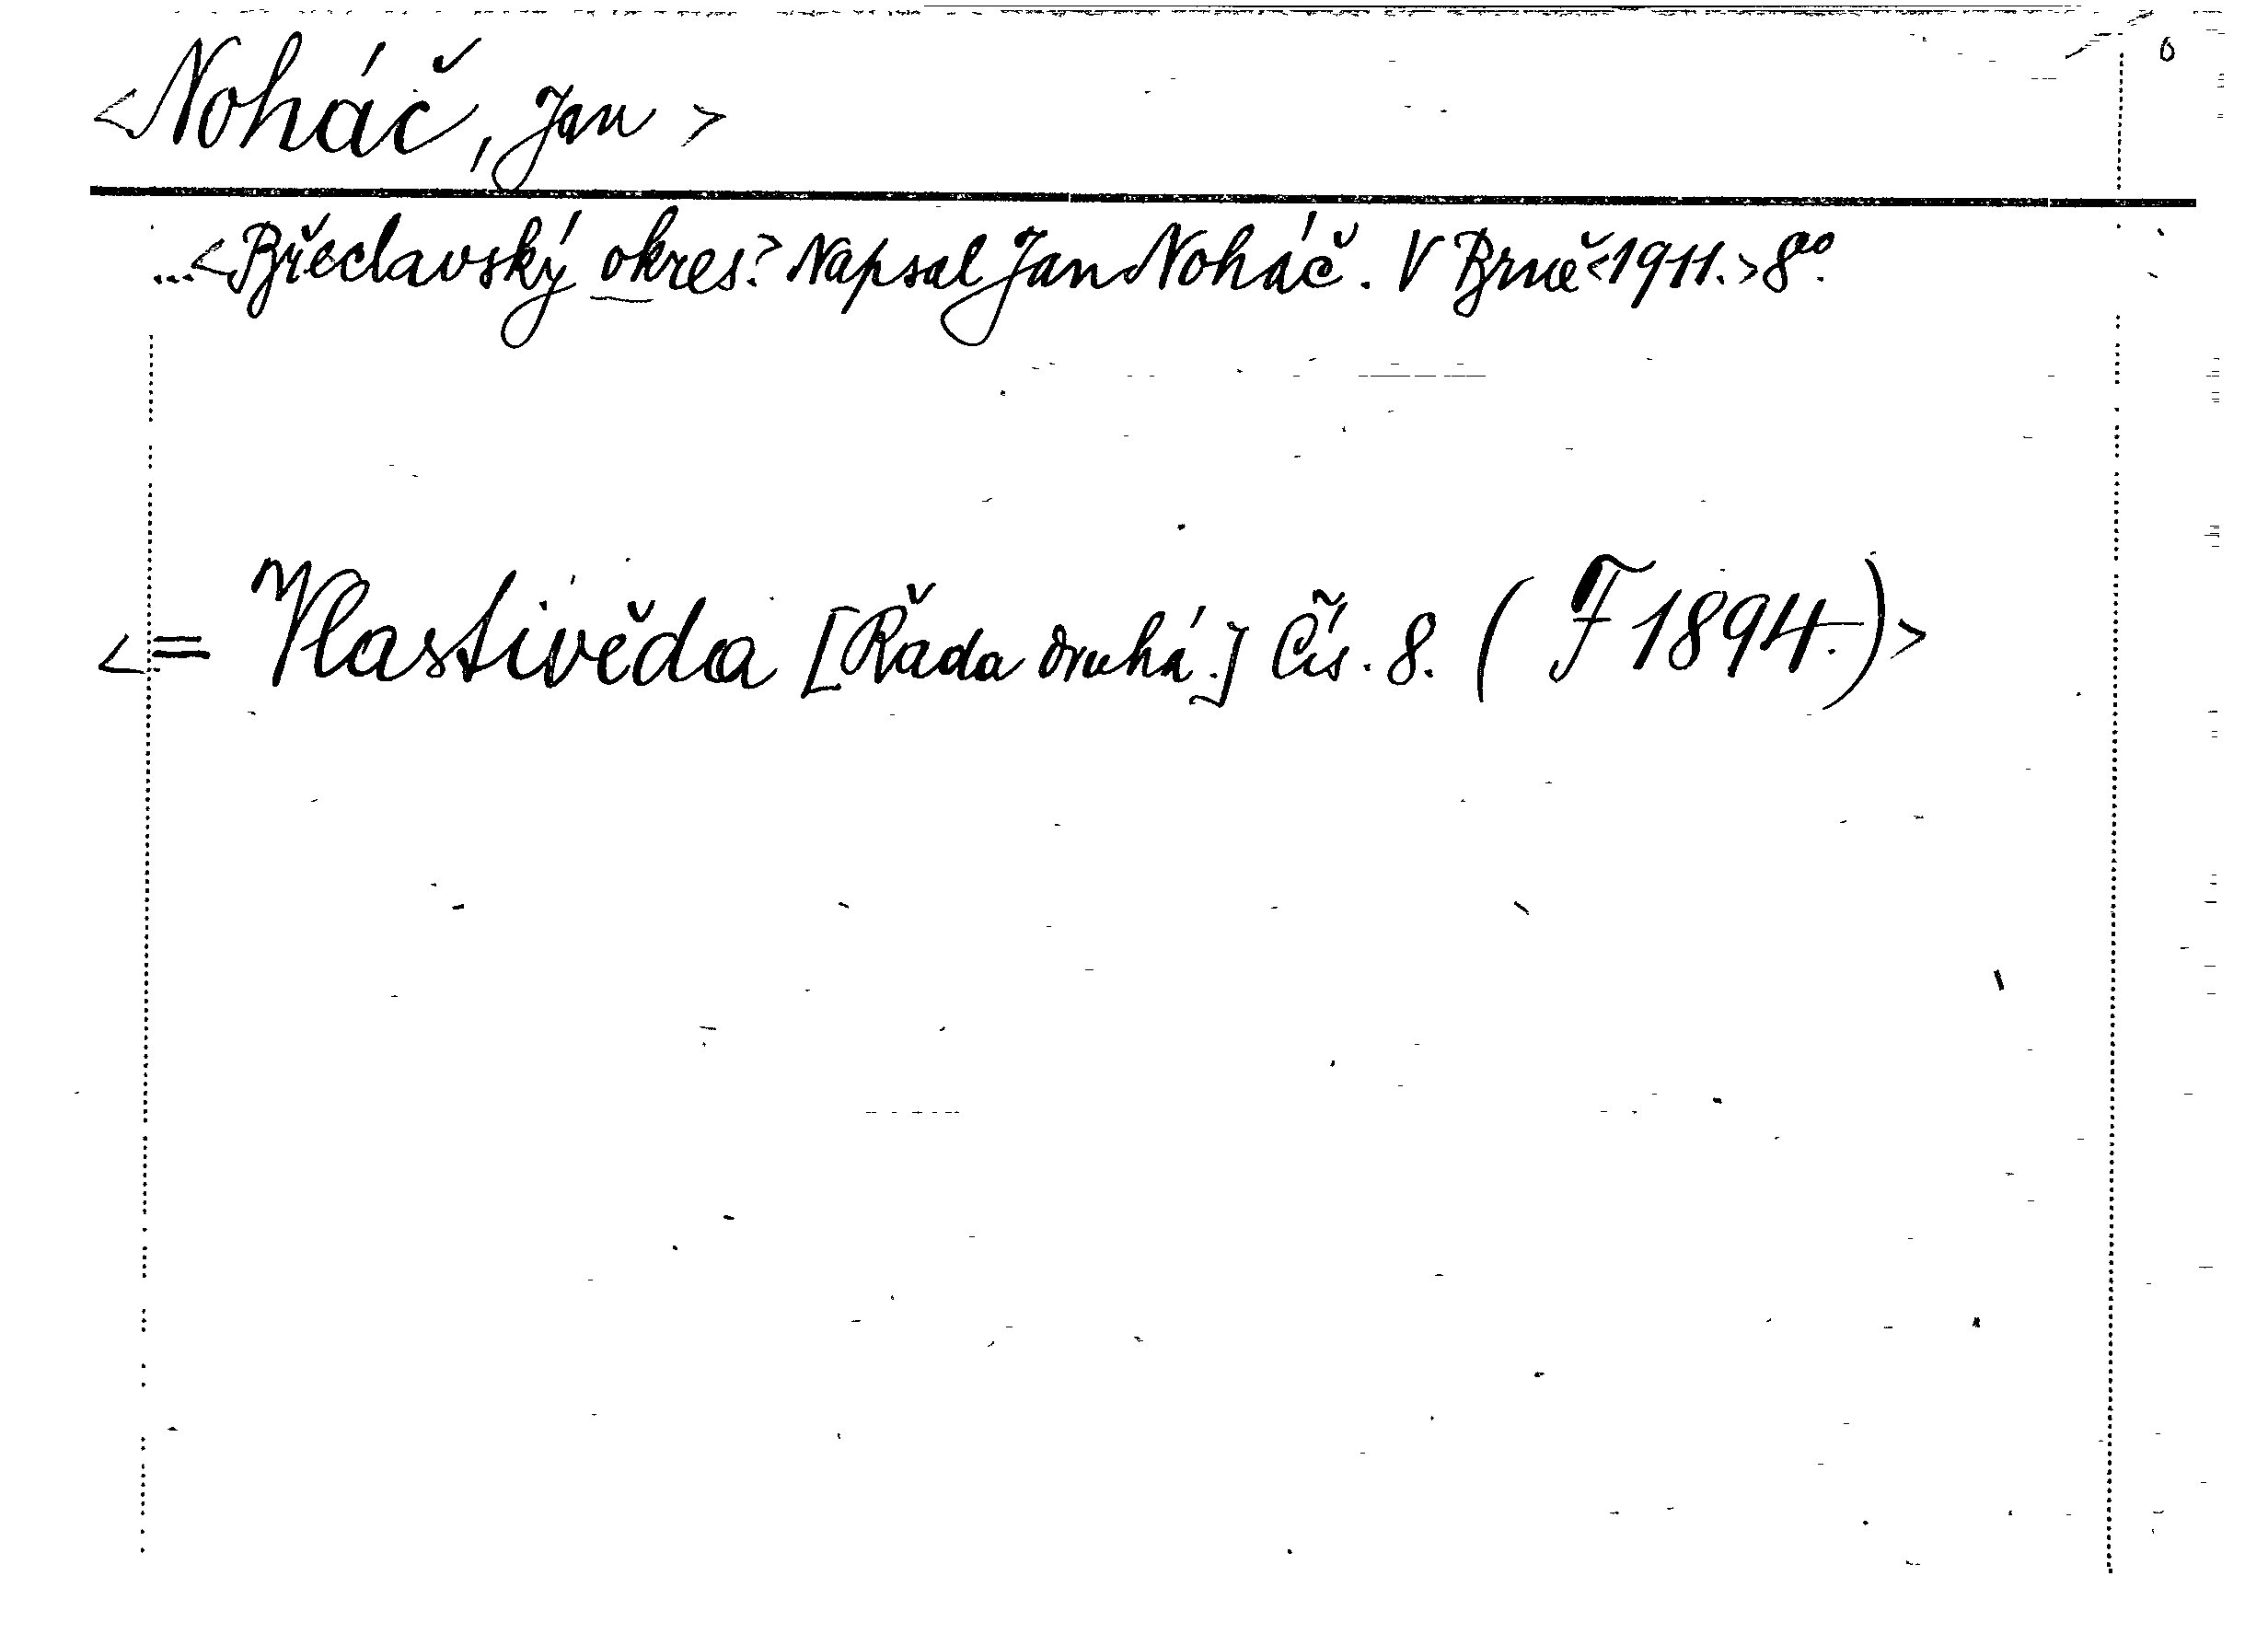 <Noháč, Jan>
...<Břeclavský okres.> Napsal Jan Noháč. V Brně <1911.> 8°.
<= Vlastivěda [Řada druhá.] Čís. 8. (F 1894.)>